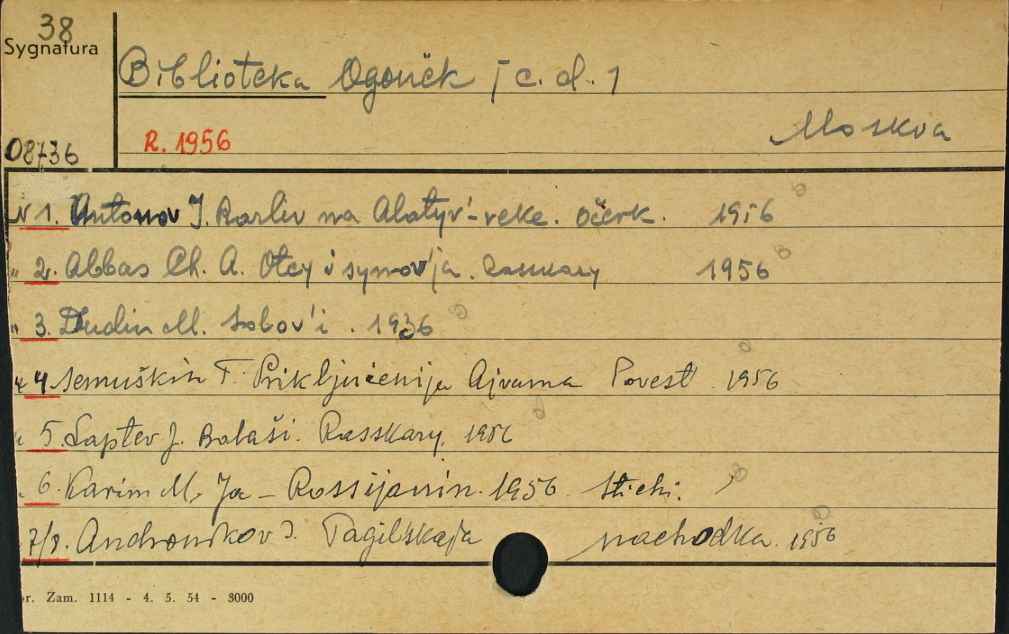 38
Sygnatura
Biblioteka Ogonëk [c. d.]
Moskva
08736
R. 1956
N 1. Antonov J. Karliv na Alatyr'-reke. Očerk. 1956
" 2. Abbas Ch. A. Otcy i synov'ja. Rasskazy 1956
" 3. Dudin M. 1936
" 4 Semuškin T. Priključenija Ajvama Povest 1956
" 5. Laptev J. Balaši. Rasskazy. 1956
" 6. Karim M. Ja - Rossijanin. 1956. Stichi.
7/8. Andronikov I. Tagil'skaja nachodka. 1956
r. Zam. 1114 - 4. 5. 54 - 3000